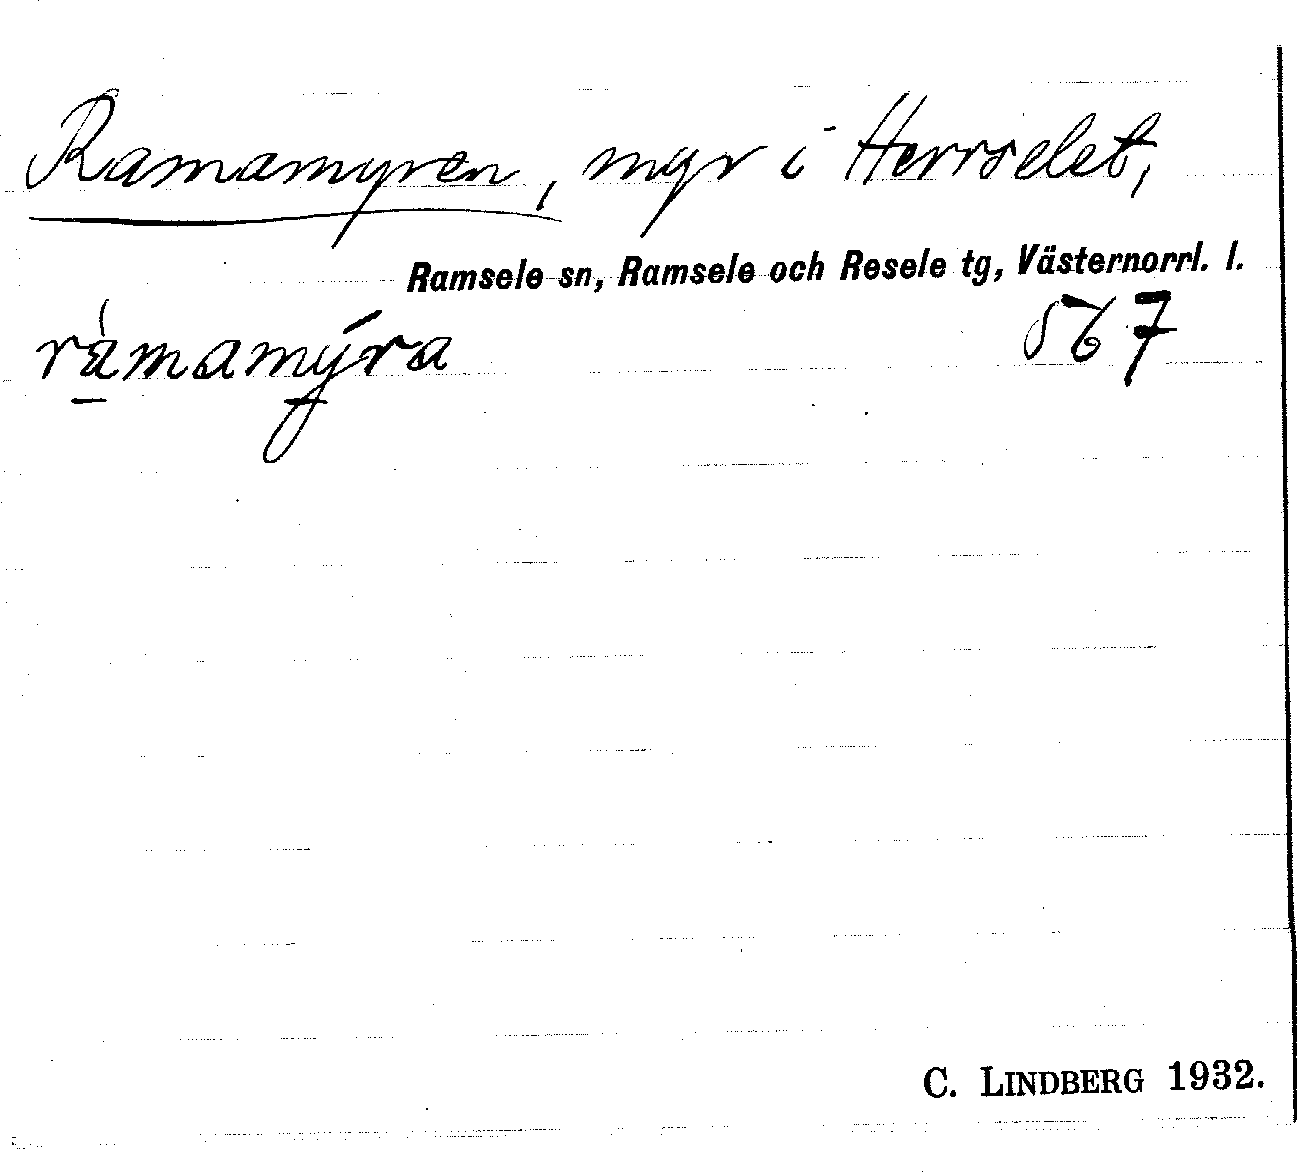 Ramamyren, myr i Herrselet,
Ramsele sn, Ramsele och Resele tg, Västernorrl. l.
ràmamýra 567
C. LINDBERG 1932.